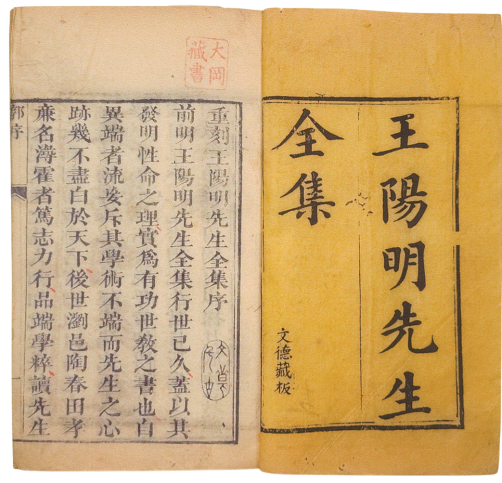 王陽明先生
全集
文德藏板
大岡
藏書
重刻王陽明先生全集序
前明王陽明先生全集行世已久蓋以其
發明性命之理實爲有功世敎之書也自
異端者流妄斥其學術不端而先生之心
跡幾不盡白於天下後世瀏邑陶春田孝
廉名潯霍者篤志力行品端學粹讀先生
郭序